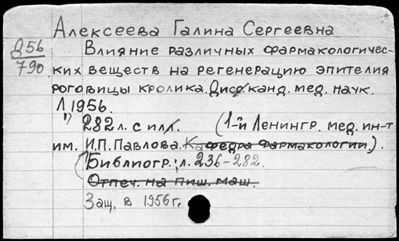 Алексеева Галина Сергеевна
Д56
790
Влияние различных фармакологичес-
ких веществ на регенерацию эпителия
роговицы кролика. Дисс. канд. мед. наук.
Л 1956.
282 л. с илл. (1-й Ленингр. мед. ин-т
им. И.П. Павлова. Кафедра фармакологии).
(Библиогр.: л. 236-282.
Отпеч. на пиш. маш.
Защ. в 1956 г.